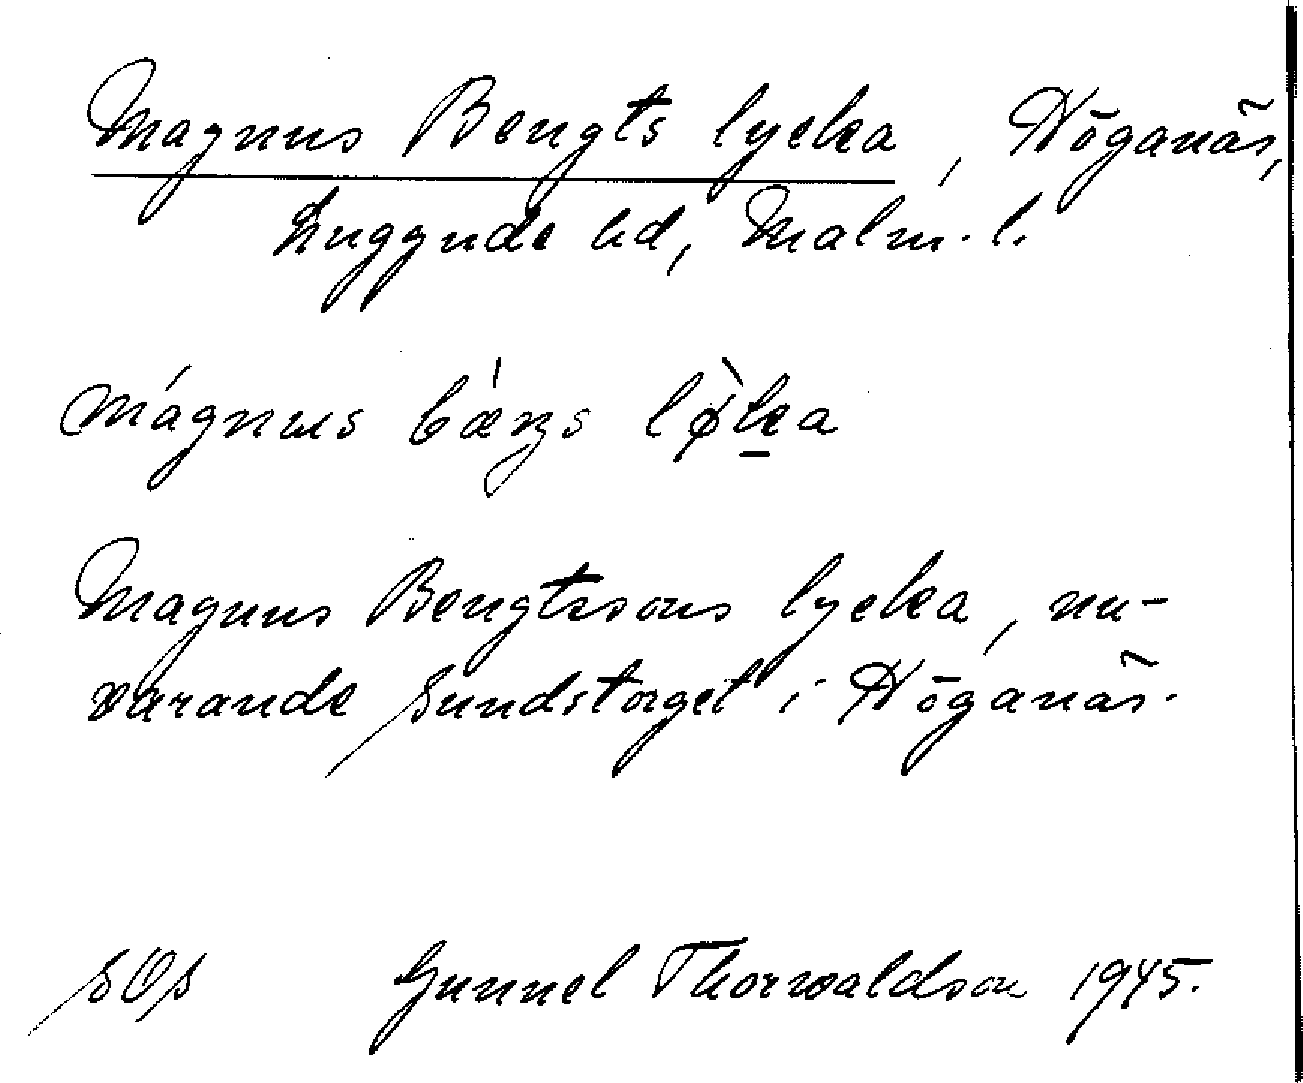 Magnus Bengts lycka, Höganäs,
Luggude hd, Malm. l.
mágnɯs bæ̀ŋs lø̀ka
Magnus Bengtssons lycka, nu-
varande Sundstorget i Höganäs.
SOS Gunnel Thorwaldson 1945.